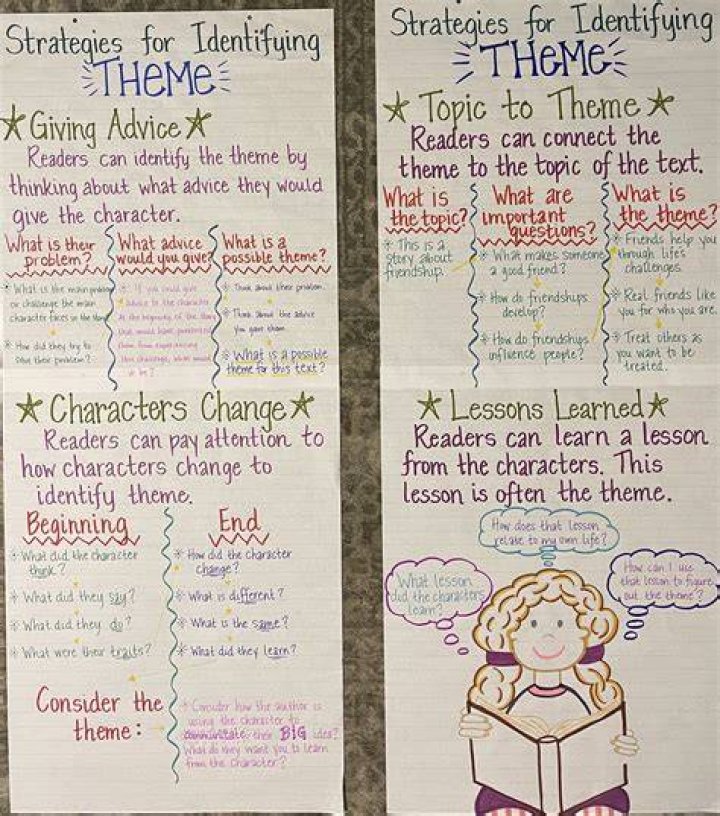 Strategies for Identifying
THEME
★ Giving Advice ★
Readers can identify the theme by
thinking about what advice they would
give the character.
What is their
problem?
* What is the main problem
or challenge the main
character faces in the story
* How did they try to
solve their problem?
What advice
would you give?
* If you could give
advice to the character
at the beginning of the story
that would have prevented
them from experiencing
this challenge, what would
it be?
What is a
possible theme?
* Think about their problem.
* Think about the advice
you gave them.
* What is a possible
theme for this text?
★ Characters Change ★
Readers can pay attention to
how characters change to
identify theme.
Beginning
* What did the character
think?
* What did they say?
* What did they do?
* What were their traits?
End
* How did the character
change?
* What is different?
* What is the same?
* What did they learn?
Consider the
theme:
* Consider how the author is
using the character to
their BIG idea?
What do they want you to learn
from the character?
Strategies for Identifying
THEME
★ Topic to Theme ★
Readers can connect the
theme to the topic of the text.
What is
the topic?
* This is a
story about
friendship.
What are
important
questions?
* What makes someone
a good friend?
* How do friendships
develop?
* How do friendships
influence people?
What is
the theme?
* Friends help you
through life's
challenges.
* Real friends like
you for who you are.
* Treat others as
you want to be
treated.
★ Lessons Learned ★
Readers can learn a lesson
from the characters. This
lesson is often the theme.
What lesson
did the characters
learn?
How does that lesson
relate to my own life?
How can I use
that lesson to figure
out the theme?